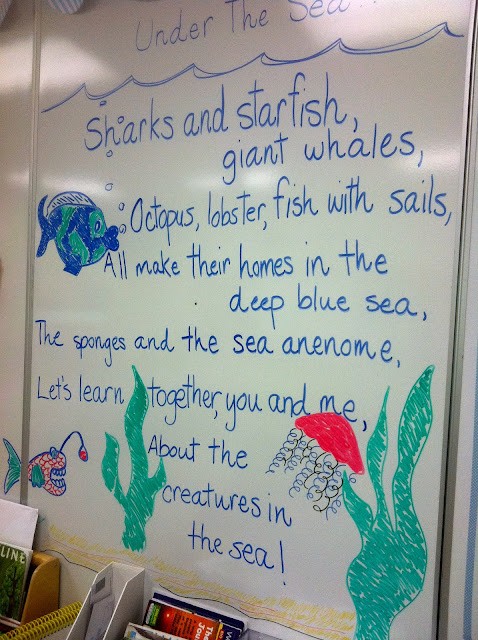 Under The Sea...
Sharks and starfish,
giant whales,
Octopus, lobster, fish with sails,
All make their homes in the
deep blue sea,
The sponges and the sea anenome,
Let's learn together, you and me,
About the
creatures in
the sea!
LINE
The